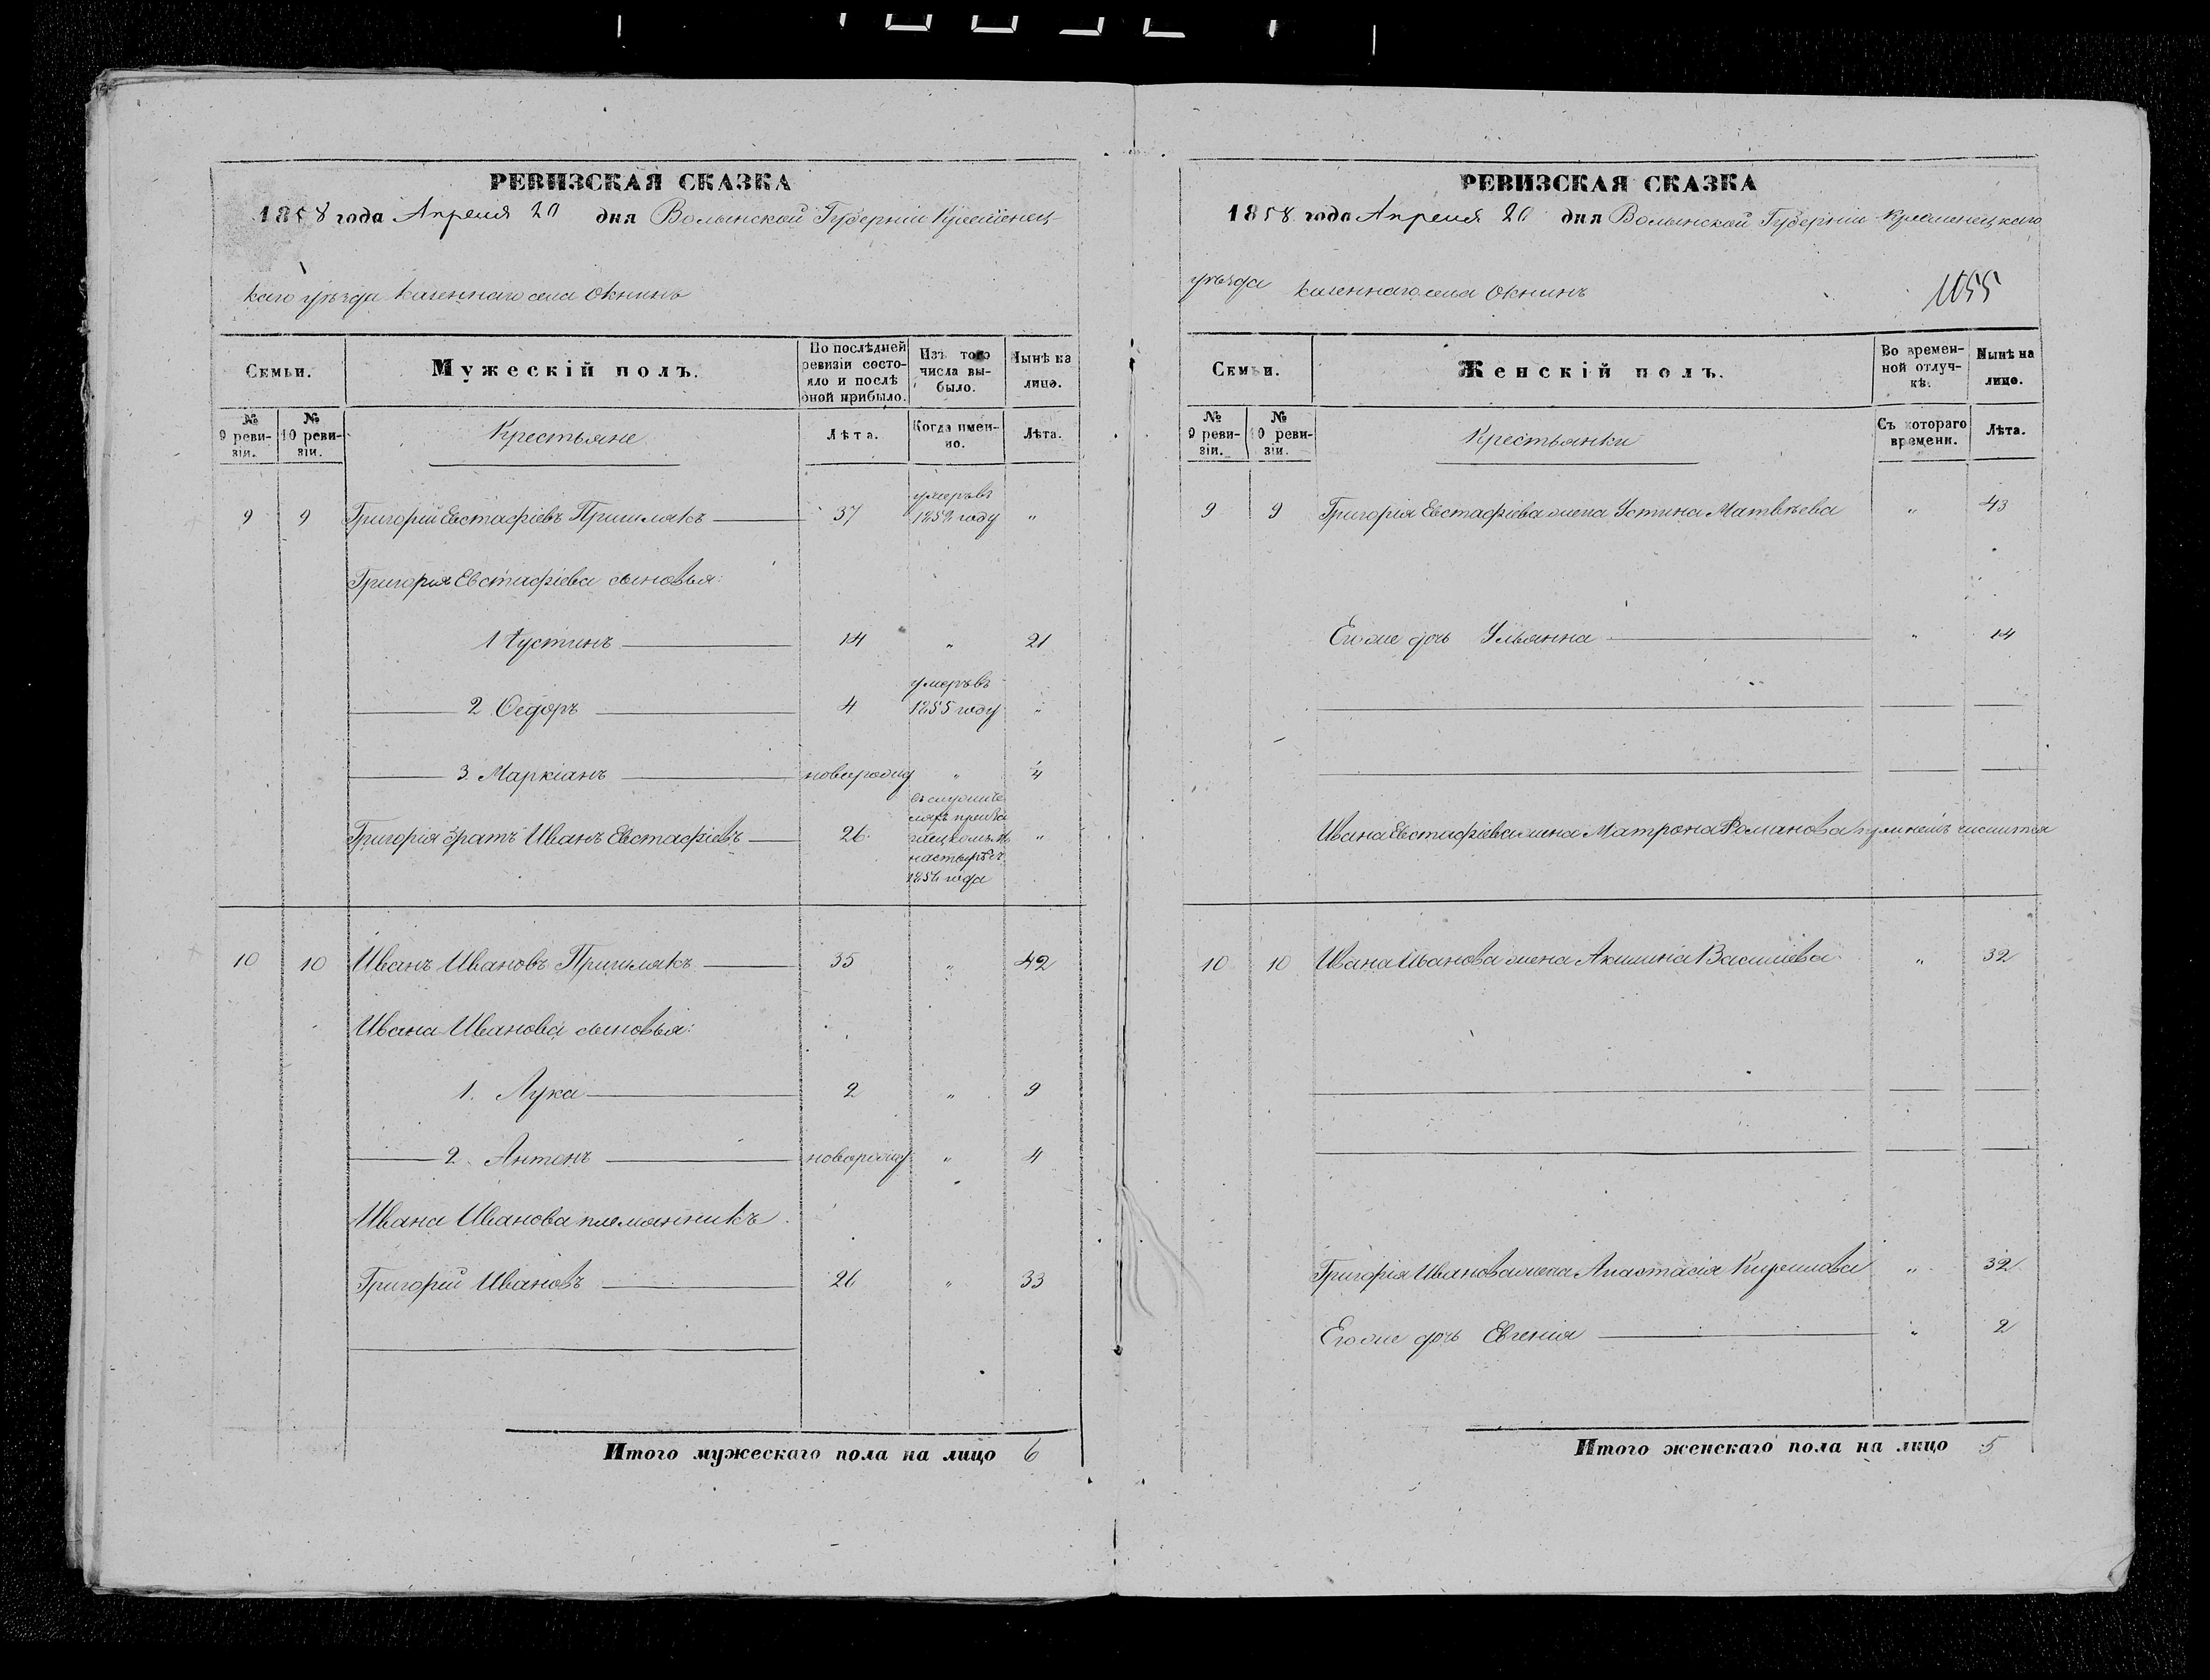 РЕВИЗСКАЯ СКАЗКА
1858 года Апреля 20 дня Волынской Губерніи Кременец-
каго уѣзда казеннаго села Окнинъ
Семьи.
Мужескій полъ.
По послѣдней ревизіи состояло и послѣ оной прибыло.
Изъ того числа выбыло.
Нынѣ на лицо.
№ 9 ревизіи.
№ 10 ревизіи.
Крестьяне
Лѣта.
Когда именно.
Лѣта.
9 9 Григорій Евстафіевъ Пришлякъ 37 умеръ въ 1852 году „
Григорія Евстафіева сыновья:
1 Іустинъ 14 „ 21
2 Ѳедоръ 4 умеръ въ 1855 году „
3 Маркіанъ новорожд „ 4
Григорія братъ Иванъ Евстафіевъ 26 1856 года „
10 10 Иванъ Ивановъ Пришлякъ 35 „ 42
Ивана Иванова сыновья:
1. Лука 2 „ 9
2. Антонъ новорожд „ 4
Ивана Иванова племянникъ
Григорій Ивановъ 26 „ 33
Итого мужескаго пола на лицо 6
РЕВИЗСКАЯ СКАЗКА
1858 года Апреля 20 дня Волынской Губерніи Кременецкаго
уѣзда казеннаго села Окнинъ
1055
Семьи.
Женскій полъ.
Во временной отлучкѣ.
Нынѣ на лицо.
№ 9 ревизіи.
№ 10 ревизіи.
Крестьянки
Съ котораго времени.
Лѣта.
9 9 Григорія Евстафіева жена Устина Матвѣева „ 43
Его же дочь Ульянна „ 14
Ивана Евстафіева жена Матрона Романова числится
10 10 Ивана Иванова жена Акилина Василіева „ 32
Григорія Иванова жена Анастасія Кирилова „ 32
Его же дочь Евгенія „ 2
Итого женскаго пола на лицо 5